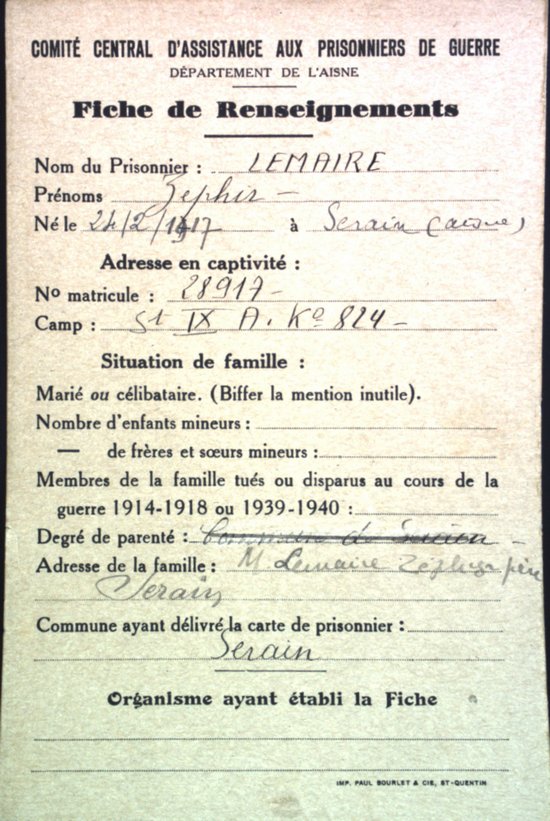 COMITÉ CENTRAL D'ASSISTANCE AUX PRISONNIERS DE GUERRE
DÉPARTEMENT DE L'AISNE
Fiche de Renseignements
Nom du Prisonnier : LEMAIRE
Prénoms Zéphir –
Né le 24/2/1917 à Serain (aisne)
Adresse en captivité :
Nº matricule : 28917 –
Camp : St IX A. Kº 824 –
Situation de famille :
Marié ou célibataire. (Biffer la mention inutile).
Nombre d'enfants mineurs :
— de frères et sœurs mineurs :
Membres de la famille tués ou disparus au cours de la
guerre 1914-1918 ou 1939-1940 :
Degré de parenté : –
Adresse de la famille : M Lemaire père
Serain
Commune ayant délivré la carte de prisonnier :
Serain
Organisme ayant établi la Fiche
IMP. PAUL BOURLET & CIE, ST-QUENTIN